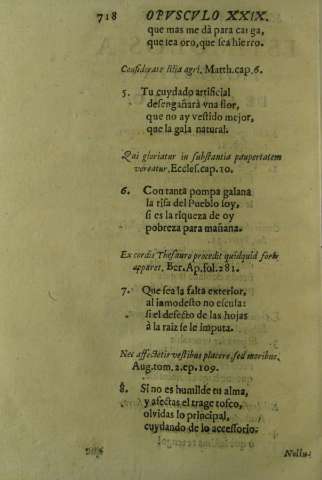 718 OPVSCVLO XXIX.
que mas me dà para carga,
que sea oro, que sea hierro.
Considerate lilia agri. Matth.cap.6.
5. Tu cuydado artificial
desengañarà vna flor,
que no ay vestido mejor,
que la gala natural.
Qui gloriatur in substantia paupertatem
vereatur. Eccles.cap.10.
6. Con tanta pompa galana
la risa del Pueblo soy,
si es la riqueza de oy
pobreza para mañana.
Ex cordis Thesauro procedit quidquid foris
apparet. Ber. Ap. fol. 281.
7. Que sea la falta exterior,
al inmodesto no escusa:
si el defecto de las hojas
à la raiz se le imputa.
Nec affectetis vestibus placere, sed moribus.
Aug. tom. 2. ep. 109.
8. Si no es humilde tu alma,
y afectas el trage tosco,
olvidas lo principal,
cuydando de lo accessorio.
Nollu-